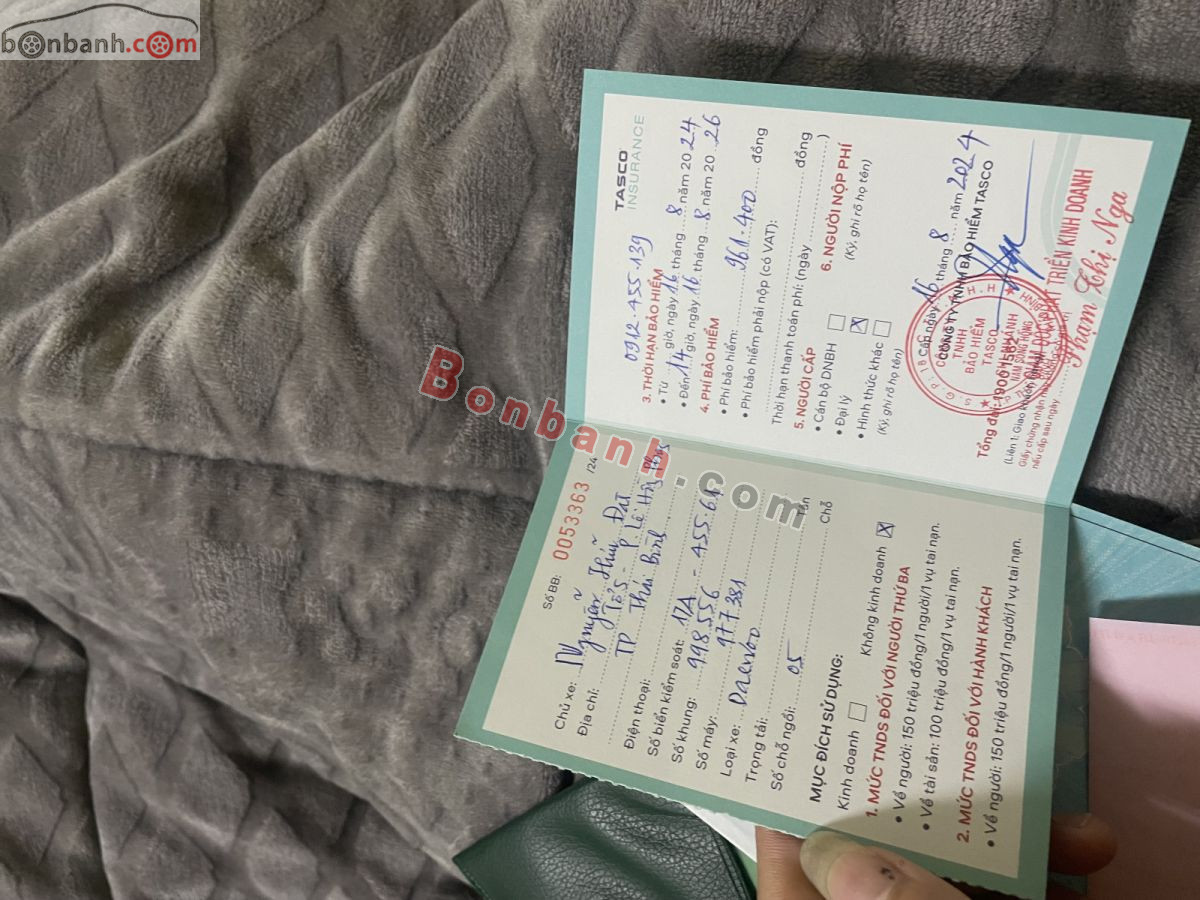 bonbanh.com
Số BB: 0053363 /24
Chủ xe: Nguyễn Hữu Đạt
Địa chỉ: Tổ 5 - P. Lê Hồng Phong
TP Thái Bình
Điện thoại:
Số biển kiểm soát: 17A - 455.64
Số khung: 998556
Số máy: 977381
Loại xe: Daewoo
Trọng tải: Tấn
Số chỗ ngồi: 05 Chỗ
MỤC ĐÍCH SỬ DỤNG:
Kinh doanh Không kinh doanh X
1. MỨC TNDS ĐỐI VỚI NGƯỜI THỨ BA
• Về người: 150 triệu đồng/1 người/1 vụ tai nạn.
• Về tài sản: 100 triệu đồng/1 vụ tai nạn.
2. MỨC TNDS ĐỐI VỚI HÀNH KHÁCH
• Về người: 150 triệu đồng/1 người/1 vụ tai nạn.
TASCO
INSURANCE
0912.455.139
3. THỜI HẠN BẢO HIỂM
• Từ giờ, ngày 16 tháng 8 năm 2024
• Đến 14 giờ, ngày 16 tháng 8 năm 2026
4. PHÍ BẢO HIỂM
• Phí bảo hiểm: 961.400 đồng
• Phí bảo hiểm phải nộp (có VAT):
đồng
Thời hạn thanh toán phí: (ngày )
5. NGƯỜI CẤP 6. NGƯỜI NỘP PHÍ
• Cán bộ DNBH (Ký, ghi rõ họ tên)
• Đại lý X
• Hình thức khác
(Ký, ghi rõ họ tên)
Cấp ngày 16 tháng 8 năm 2024
CÔNG TY TNHH BẢO HIỂM TASCO
TNHH
BẢO HIỂM
TASCO
NAM SÔNG HỒNG
Tổng đài: 19001562
(Liên 1: Giao khách hàng)
Giấy chứng nhận
nếu cấp sau ngày
TRIỂN KINH DOANH
Phạm Thị Nga
Bonbanh.com